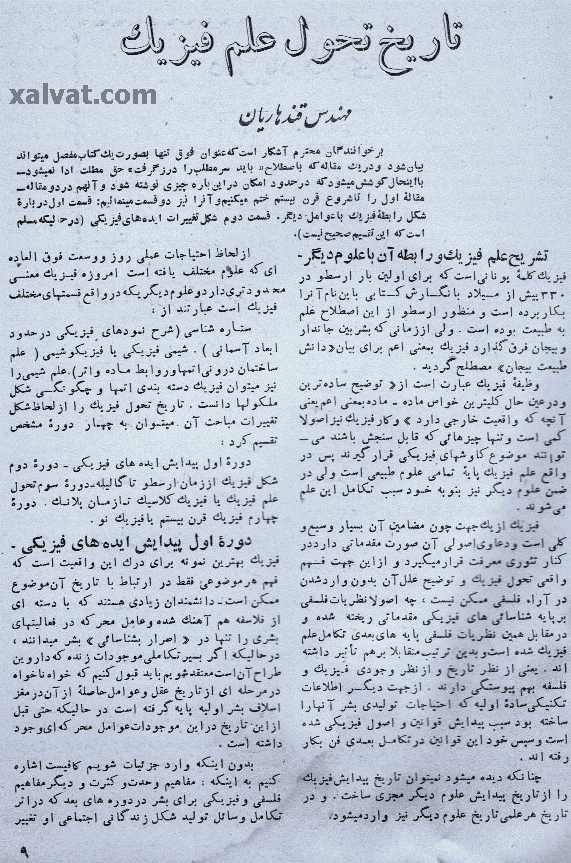 تاریخ تحول علم فیزیک
xalvat.com
مهندس قندهاریان
برخوانندگان محترم آشکار است که عنوان فوق تنها بصورت یک کتاب مفصل میتواند
بیان شود و در یک مقاله که باصطلاح «باید سر مطلب را درز گرفت» حق مطلب ادا نمیشود—
با اینحال کوشش میشود که در حدود امکان در این باره چیزی نوشته شود و آنهم در دو مقاله—
مقالهٔ اول را تا شروع قرن بیستم ختم میکنیم و آنرا نیز دو قسمت مینمائیم: قسمت اول در بارهٔ
شکل رابطهٔ فیزیک با عوامل دیگر. قسمت دوم شکل تغییرات ایده‌های فیزیکی (در حالیکه مسلم
است که این تقسیم صحیح نیست).
تشریح علم فیزیک و رابطه آن با علوم دیگر-
فیزیک کلمهٔ یونانی است که برای اولین بار ارسطو در
۳۳۰ پیش از میلاد بانگارش کتابی باین نام آنرا
بکار برده است و منظور ارسطو از این اصطلاح علم
به طبیعت بوده است. ولی از زمانی که بشر بین جاندار
و بیجان فرق گذارد فیزیک بمعنی اعم برای بیان «دانش
طبیعت بیجان» مصطلح گردید.
وظیفهٔ فیزیک عبارت است از «توضیح ساده‌ترین
و در عین حال کلیترین خواص ماده - ماده بمعنی اعم یعنی
آنچه که واقعیت خارجی دارد» و کار فیزیک نیز اصولا
کمی است و تنها چیزهائی که قابل سنجش باشند می—
توانند موضوع کاوشهای فیزیکی قرار گیرند پس در
واقع علم فیزیک پایهٔ تمامی علوم طبیعی است ولی در
ضمن علوم دیگر نیز بنوبه خود سبب تکامل این علم
می‌شوند.
فیزیک از یک جهت چون مضامین آن بسیار وسیع و
کلی است و دعاوی اصولی آن صورت مقدماتی دارد در
کنار تئوری معرفت قرار میگیرد و از این جهت فهم
واقعی تحول فیزیک و توضیح علل آن بدون وارد شدن
در آراء فلسفی ممکن نیست، چه اصولا نظریات فلسفی
بر پایه شناسائی های فیزیکی مقدماتی ریخته شده و
در مقابل همین نظریات فلسفی پایه های بعدی تکامل علم
فیزیک شده است و بدین ترتیب متقابلا بر هم تأثیر داشته
اند. یعنی از نظر تاریخ و از نظر وجودی فیزیک و
فلسفه بهم پیوستگی دارند. از جهت دیگر اطلاعات
تکنیکی سادهٔ اولیه که احتیاجات تولیدی بشر آنها را
ساخته بود سبب پیدایش قوانین و اصول فیزیکی شده
است و سپس خود این قوانین در تکامل بعدی فن بکار
رفته اند.
چنانکه دیده میشود نمیتوان تاریخ پیدایش فیزیک
را از تاریخ پیدایش علوم دیگر مجزی ساخت. و در
تاریخ هر علمی تاریخ علوم دیگر نیز وارد میشود.
از لحاظ احتیاجات عملی روز و وسعت فوق العاده
ای که علوم مختلف یافته است امروزه فیزیک معنی
محدودتری دارد و علوم دیگری که در واقع قسمتهای مختلف
فیزیک است عبارتند از:
ستاره شناسی (شرح نمودهای فیزیکی در حدود
ابعاد آسمانی). شیمی فیزیکی یا فیزیکوشیمی (علم
ساختمان درونی اتمها و روابط ماده و اتر). علم شیمی را
نیز میتوان فیزیک دسته بندی اتمها و چگونگی شکل
ملکولها دانست. تاریخ تحول فیزیک را از لحاظ شکل
تغییرات مباحث آن میتوان به چهار دورهٔ مشخص
تقسیم کرد:
دورهٔ اول پیدایش ایده های فیزیکی - دورهٔ دوم
شکل فیزیک از زمان ارسطو تا گالیله - دورهٔ سوم تحول
علم فیزیک یا فیزیک کلاسیک تا زمان پلانک. دورهٔ
چهارم فیزیک قرن بیستم یا فیزیک نو.
دورهٔ اول پیدایش ایده های فیزیکی-
فیزیک بهترین نمونه برای درک این واقعیت است که
فهم هر موضوعی فقط در ارتباط با تاریخ آن موضوع
ممکن است - دانشمندان زیادی هستند که با دسته ای
از فلاسفه هم آهنگ شده و عامل محرکه در فعالیتهای
بشری را تنها در «اصرار بشناسائی» بشر میدانند،
در حالیکه اگر بسیر تکاملی موجودات زنده که داروین
طراح آن است معتقد شویم باید قبول کنیم که خواه ناخواه
در مرحله ای از تاریخ عقل و عوامل حاصلهٔ از آن در مغز
اسلاف بشر اولیه پایه گرفته است در حالیکه حتی قبل
از این تاریخ در این موجودات عوامل محرکه‌ای وجود
داشته است.
بدون اینکه وارد جزئیات شویم کافیست اشاره
کنیم به اینکه: مفاهیم وحدت و کثرت و دیگر مفاهیم
فلسفی و فیزیکی برای بشر در دوره های بعد که در اثر
تکامل وسائل تولید شکل زندگانی اجتماعی او تغییر
۹